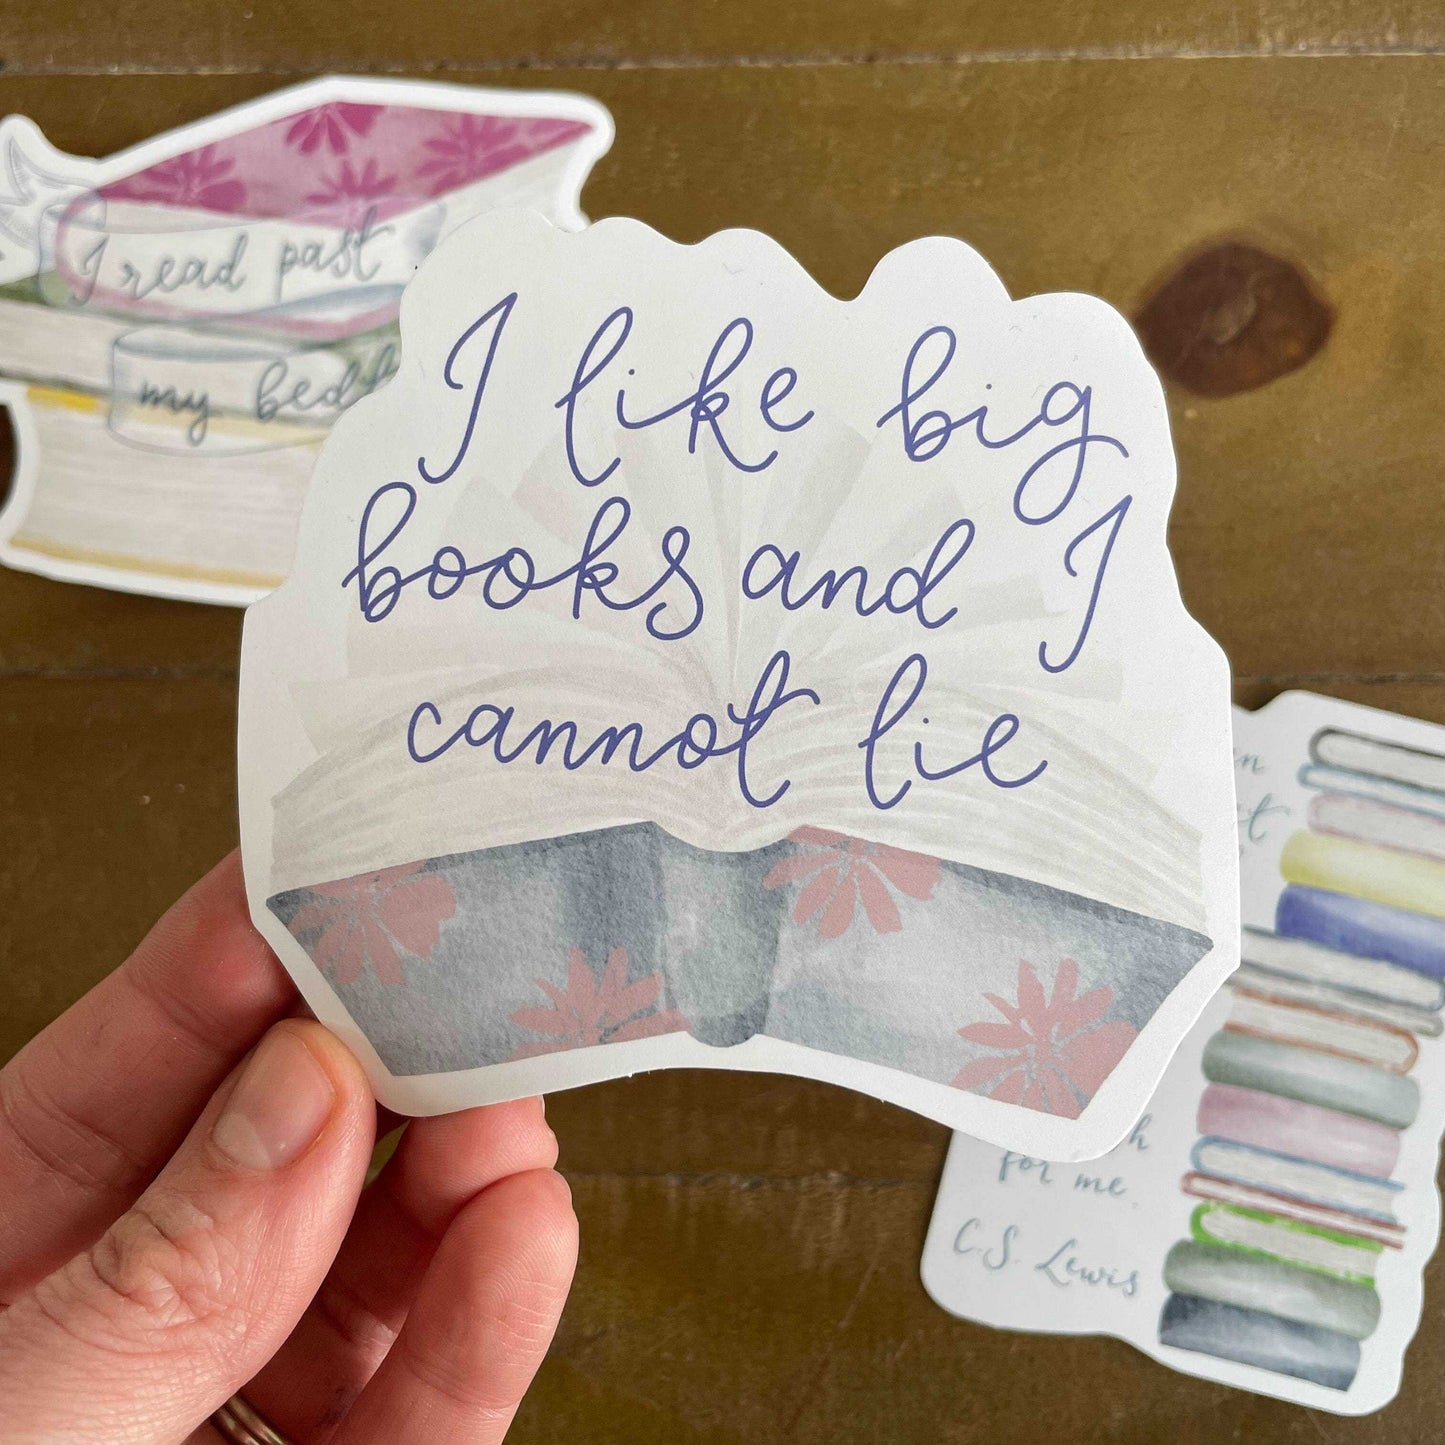 I read past
my bed
I like big
books and I
cannot lie
for me.
C.S. Lewis